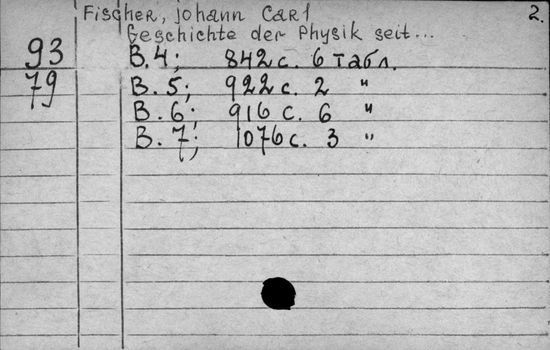 Fischer, Johann Carl 2.
Geschichte der Physik seit...
93 B. 4; 842 с. 6 табл.
79 B. 5; 922 с. 2 "
B. 6; 916 с. 6 "
B. 7; 1076 с. 3 "